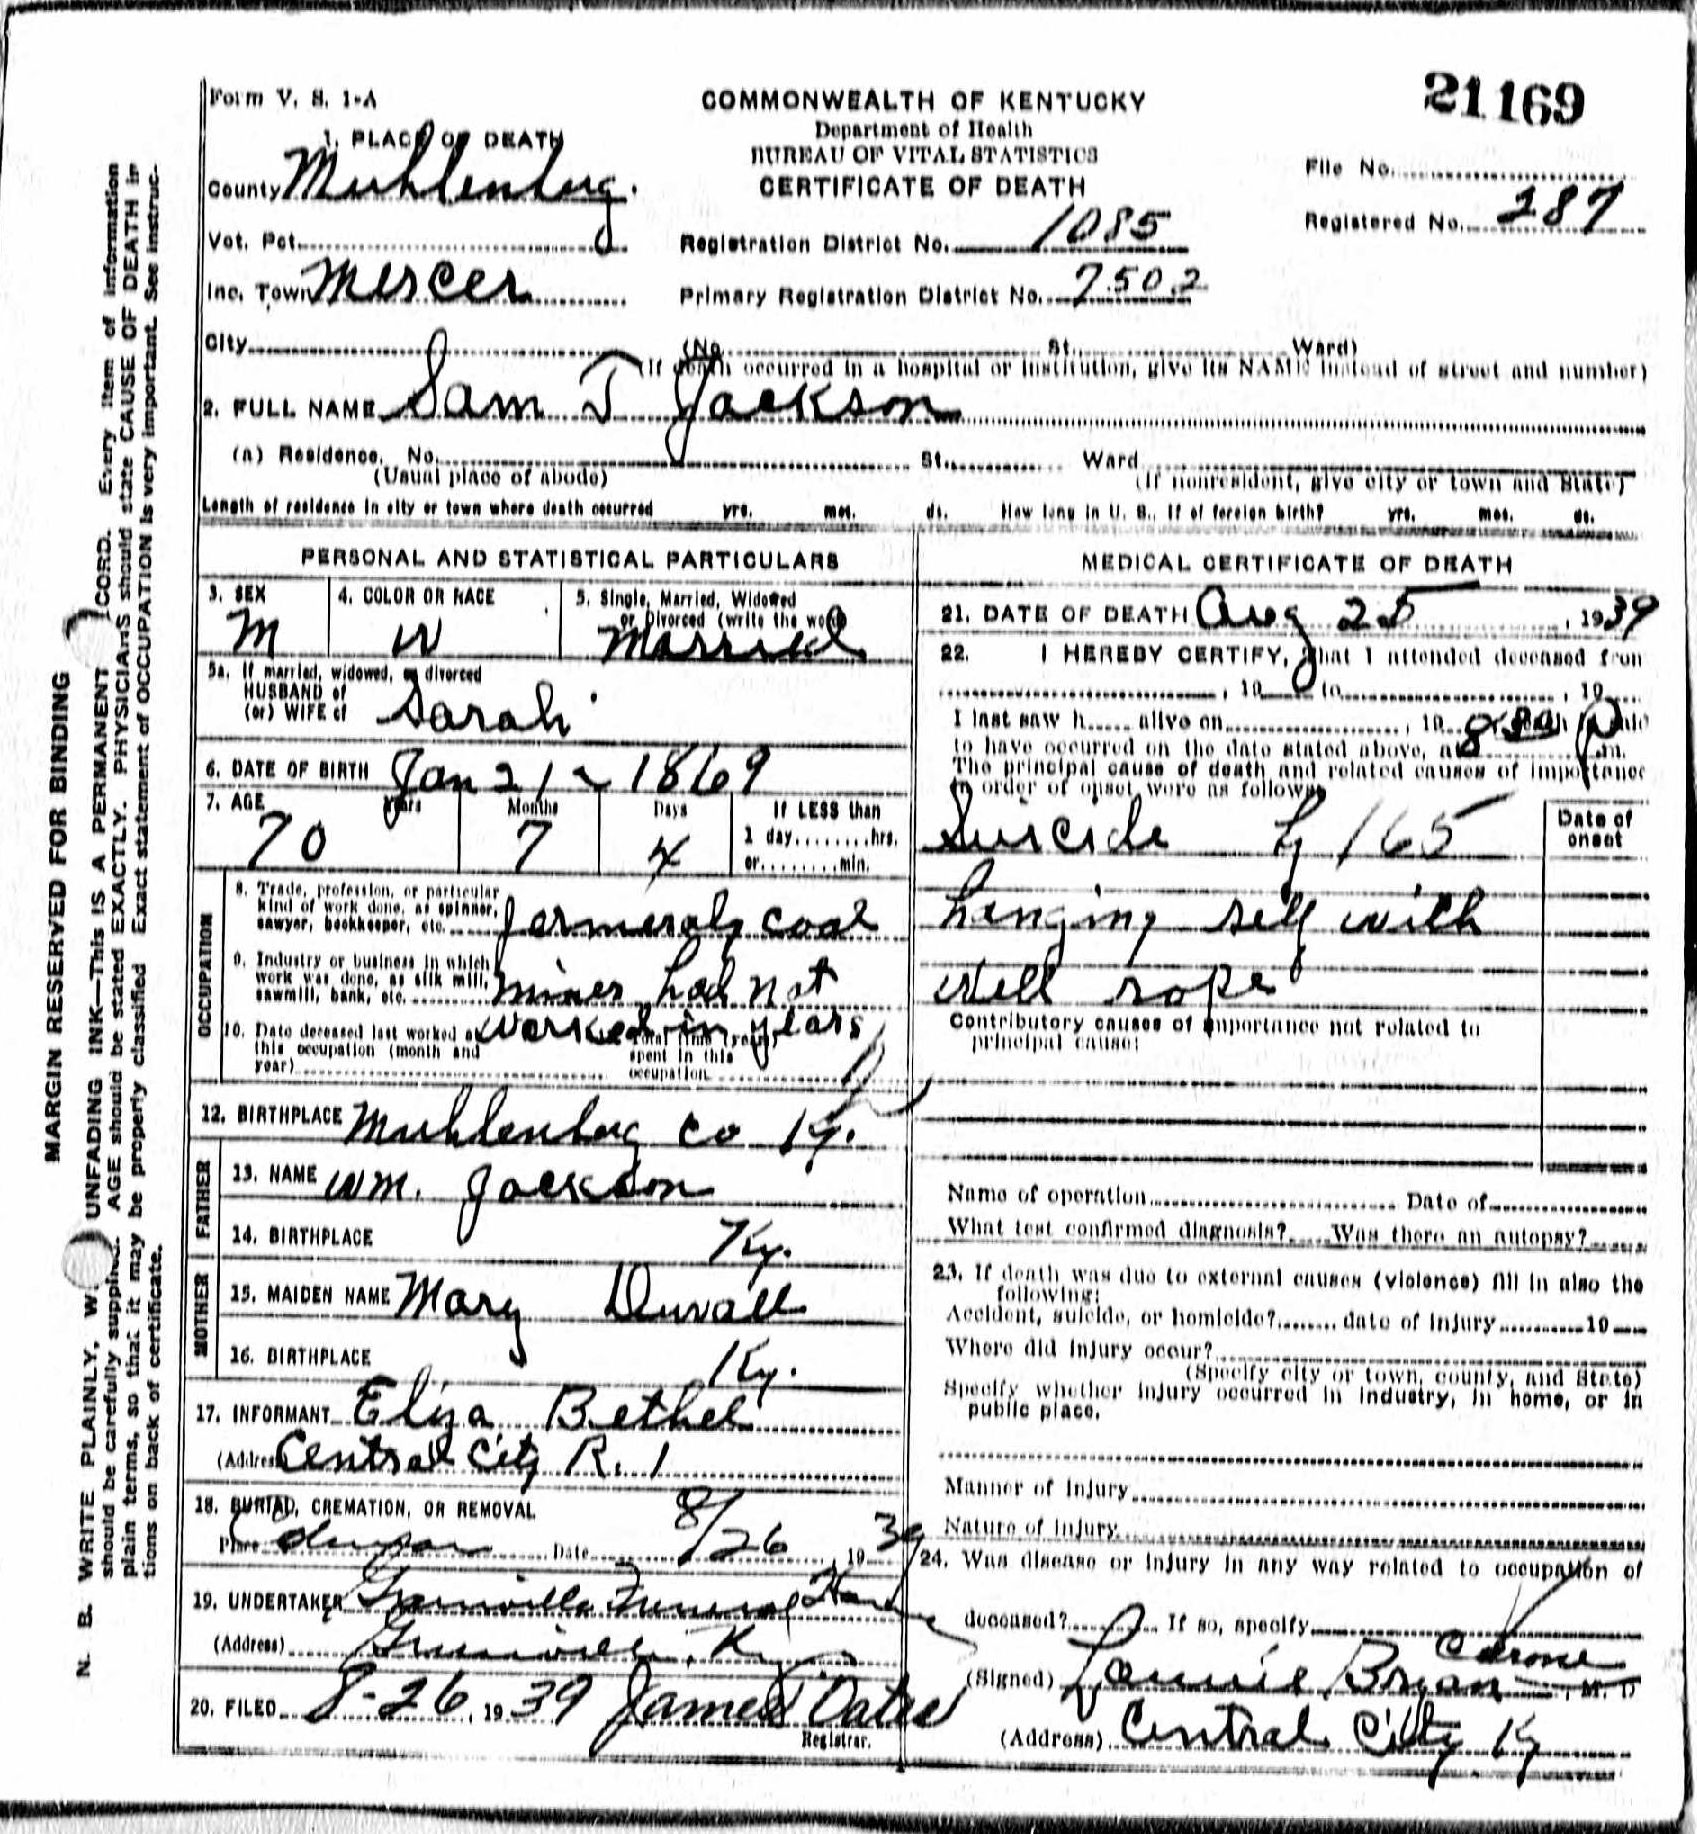 Form V. S. 1-A
COMMONWEALTH OF KENTUCKY
21169
Department of Health
BUREAU OF VITAL STATISTICS
CERTIFICATE OF DEATH
File No.
Registered No. 287
1. PLACE OF DEATH
County Muhlenberg.
Vot. Pct.
Registration District No. 1085
Inc. Town Mercer
Primary Registration District No. 7502
City (No. St. Ward)
If death occurred in a hospital or institution, give its NAME instead of street and number)
2. FULL NAME Sam T Jackson
(a) Residence. No. St. Ward
(Usual place of abode) (If nonresident, give city or town and State)
Length of residence in city or town where death occurred yrs. mos. ds. How long in U. S., if of foreign birth? yrs. mos. ds.
PERSONAL AND STATISTICAL PARTICULARS
3. SEX 4. COLOR OR RACE 5. Single, Married, Widowed
or Divorced (write the word)
M W Married
5a. If married, widowed, or divorced
HUSBAND of
(or) WIFE of Sarah
6. DATE OF BIRTH Jan 21 - 1869
7. AGE Years Months Days If LESS than
70 7 4 1 day hrs.
or min.
OCCUPATION
8. Trade, profession, or particular
kind of work done, as spinner,
sawyer, bookkeeper, etc. formerly coal
9. Industry or business in which
work was done, as silk mill,
sawmill, bank, etc. miner had not
10. Date deceased last worked at worked in years
this occupation (month and
year)
Total time (years)
spent in this
occupation
12. BIRTHPLACE Muhlenberg co Ky.
FATHER
13. NAME Wm. Jackson
14. BIRTHPLACE Ky.
MOTHER
15. MAIDEN NAME Mary Duvall
16. BIRTHPLACE Ky.
17. INFORMANT Eliza Bethel
(Address) Central City R. 1
18. BURIAL, CREMATION, OR REMOVAL
Place Date 8/26, 1939
19. UNDERTAKER Greenville Funeral Home
(Address) Greenville, Ky
20. FILED 8-26, 1939 James Oates
Registrar.
MEDICAL CERTIFICATE OF DEATH
21. DATE OF DEATH Aug 25, 1939
22. I HEREBY CERTIFY, that I attended deceased from
, 19 to , 19
I last saw h alive on , 19 death is said
to have occurred on the date stated above, at m.
The principal cause of death and related causes of importance
in order of onset were as follows:
Date of
onset
Suicide by 165
hanging self with
well rope
Contributory causes of importance not related to
principal cause:
Name of operation Date of
What test confirmed diagnosis? Was there an autopsy?
23. If death was due to external causes (violence) fill in also the
following:
Accident, suicide, or homicide? date of injury 19
Where did injury occur?
(Specify city or town, county, and State)
Specify whether injury occurred in industry, in home, or in
public place.
Manner of Injury
Nature of Injury
24. Was disease or injury in any way related to occupation of
deceased? If so, specify
(Signed) Lannie Bryan Corone, M. D
(Address) Central City Ky
MARGIN RESERVED FOR BINDING
N. B. WRITE PLAINLY, W UNFADING INK—THIS IS A PERMANENT CORD. Every item of information
should be carefully supplied. AGE should be stated EXACTLY. PHYSICIANS should state CAUSE OF DEATH in
plain terms, so that it may be properly classified Exact statement of OCCUPATION is very important. See instruc-
tions on back of certificate.